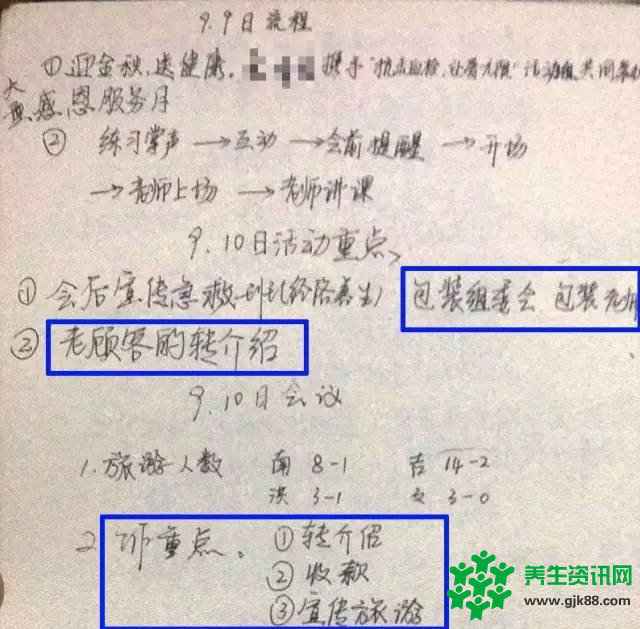 9.9日流程
①迎金秋,送健康。 携手"抗击血栓,让爱无限"活动组共同举办
大型感恩服务月
② 练习掌声→互动→会前提醒→开场
→老师上场→老师讲课
9.10日活动重点
①会后宣传急救 包装组委会 包装老师
②老顾客的转介绍
9.10日会议
1.旅游人数 南 8-1 吉 14-2
洪 3-1 文 3-0
2. 重点。 ①转介绍
②收款
③宣传旅游
养生资讯网
www.gjk88.com